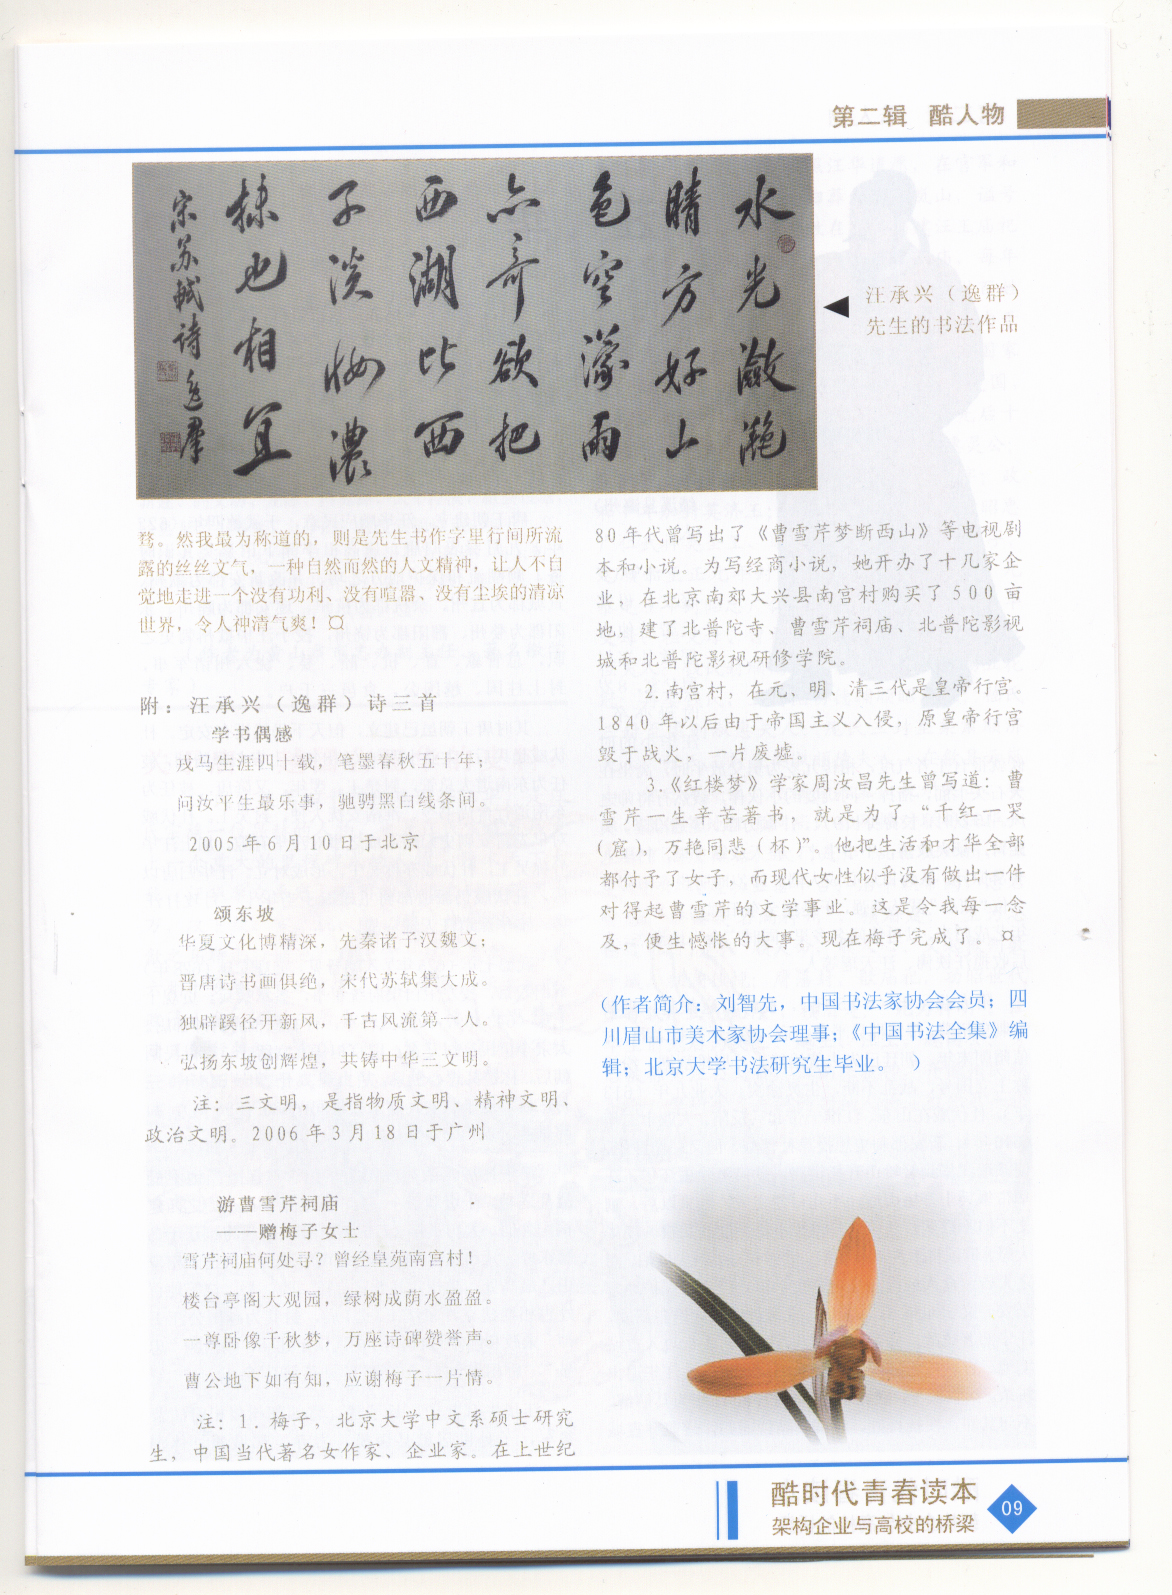 第二辑 酷人物
水光潋滟
晴方好山
色空濛雨
亦奇欲把
西湖比西
子淡妆浓
抹也相宜
宋苏轼诗 逸群
汪承兴（逸群）
先生的书法作品
骛。然我最为称道的，则是先生书作字里行间所流
露的丝丝文气，一种自然而然的人文精神，让人不自
觉地走进一个没有功利、没有喧嚣、没有尘埃的清凉
世界，令人神清气爽！¤
附：汪承兴（逸群）诗三首
学书偶感
戎马生涯四十载，笔墨春秋五十年；
问汝平生最乐事，驰骋黑白线条间。
2005年6月10日于北京
颂东坡
华夏文化博精深，先秦诸子汉魏文；
晋唐诗书画俱绝，宋代苏轼集大成。
独辟蹊径开新风，千古风流第一人。
弘扬东坡创辉煌，共铸中华三文明。
注：三文明，是指物质文明、精神文明、
政治文明。2006年3月18日于广州
游曹雪芹祠庙
——赠梅子女士
雪芹祠庙何处寻？曾经皇苑南宫村！
楼台亭阁大观园，绿树成荫水盈盈。
一尊卧像千秋梦，万座诗碑赞誉声。
曹公地下如有知，应谢梅子一片情。
注：1.梅子，北京大学中文系硕士研究
生，中国当代著名女作家、企业家。在上世纪
80年代曾写出了《曹雪芹梦断西山》等电视剧
本和小说。为写经商小说，她开办了十几家企
业，在北京南郊大兴县南宫村购买了500亩
地，建了北普陀寺、曹雪芹祠庙、北普陀影视
城和北普陀影视研修学院。
2.南宫村，在元、明、清三代是皇帝行宫。
1840年以后由于帝国主义入侵，原皇帝行宫
毁于战火，一片废墟。
3.《红楼梦》学家周汝昌先生曾写道：曹
雪芹一生辛苦著书，就是为了“千红一哭
（窟），万艳同悲（杯）”。他把生活和才华全部
都付予了女子，而现代女性似乎没有做出一件
对得起曹雪芹的文学事业。这是令我每一念
及，便生憾怅的大事。现在梅子完成了。¤
（作者简介：刘智先，中国书法家协会会员；四
川眉山市美术家协会理事；《中国书法全集》编
辑；北京大学书法研究生毕业。 ）
酷时代青春读本
架构企业与高校的桥梁
09